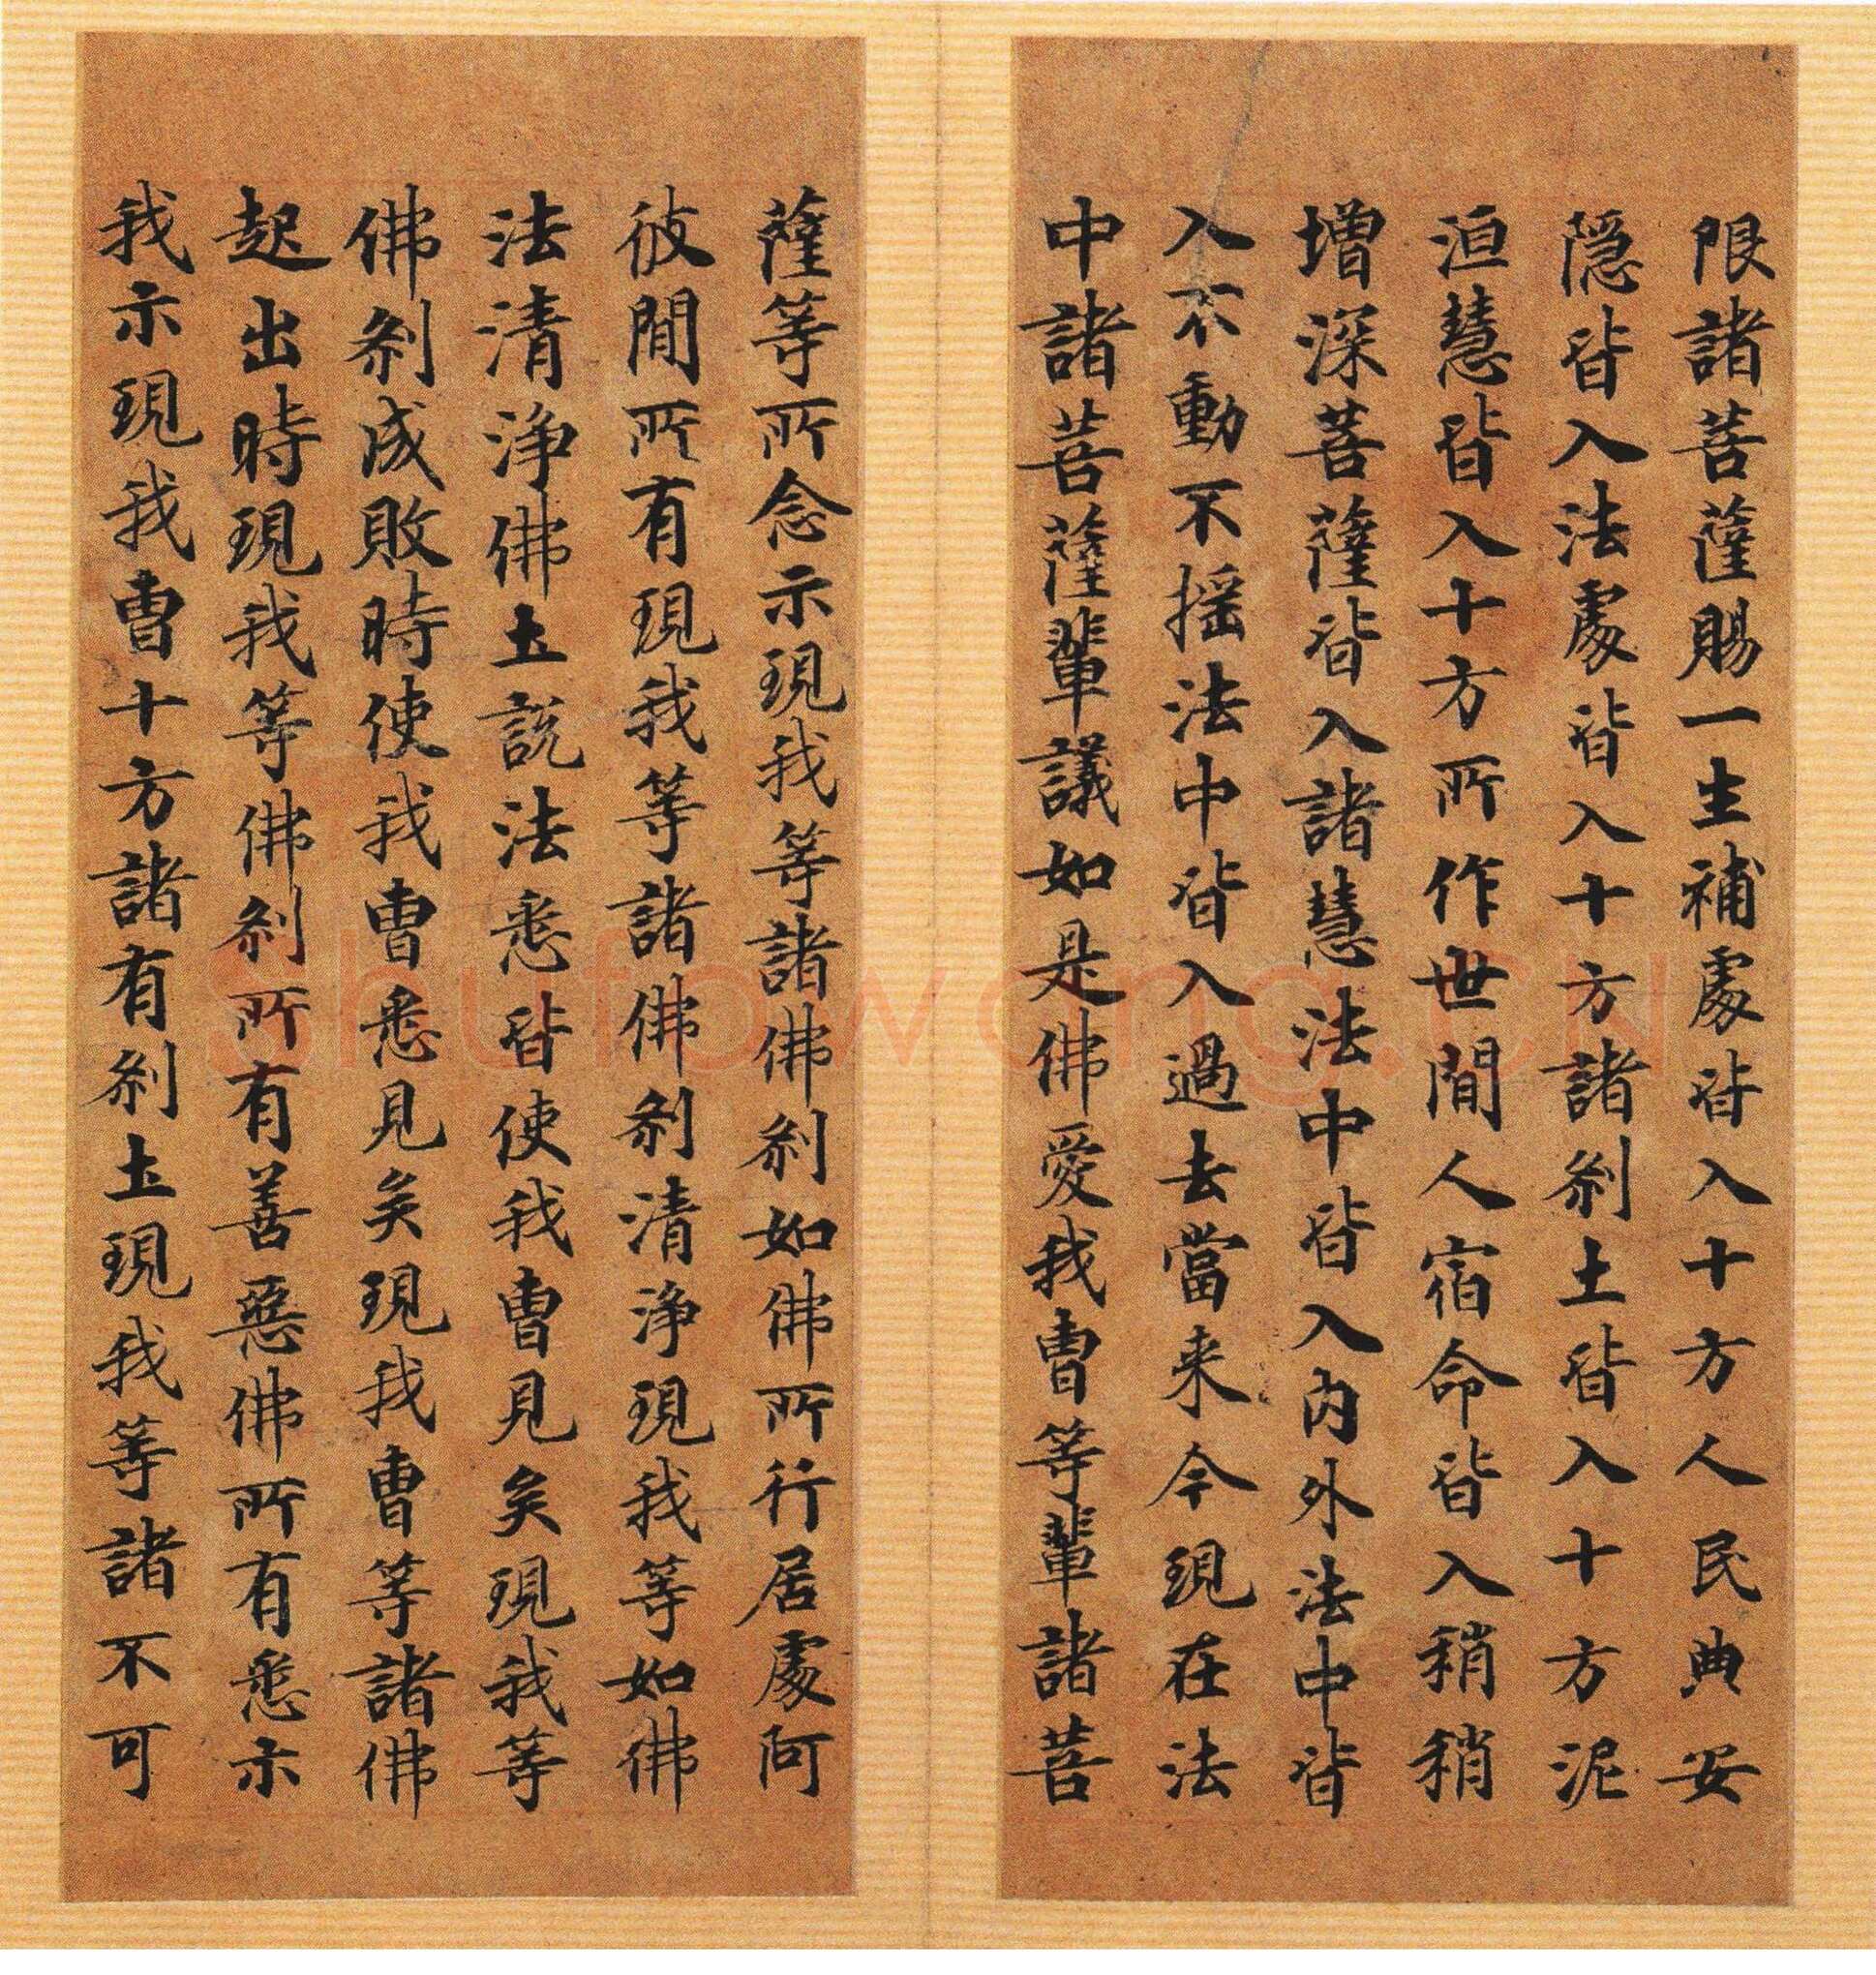 限諸菩薩賜一生補處皆入十方人民典安
隱皆入法處皆入十方諸剎土皆入十方泥
洹慧皆入十方所作世間人宿命皆入稍稍
增深菩薩皆入諸慧法中皆入內外法中皆
入不動不摇法中皆入過去當来今現在法
中諸菩薩輩議如是佛愛我曹等輩諸菩
薩等所念示現我等諸佛剎如佛所行居處阿
彼間所有現我等諸佛剎清淨現我等如佛
法清淨佛土說法悉皆使我曹見矣現我等
佛剎成敗時使我曹悉見矣現我曹等諸佛
起出時現我等佛剎所有善惡佛所有悉示
我示現我曹十方諸有剎土現我等諸不可
Shufawang.CN